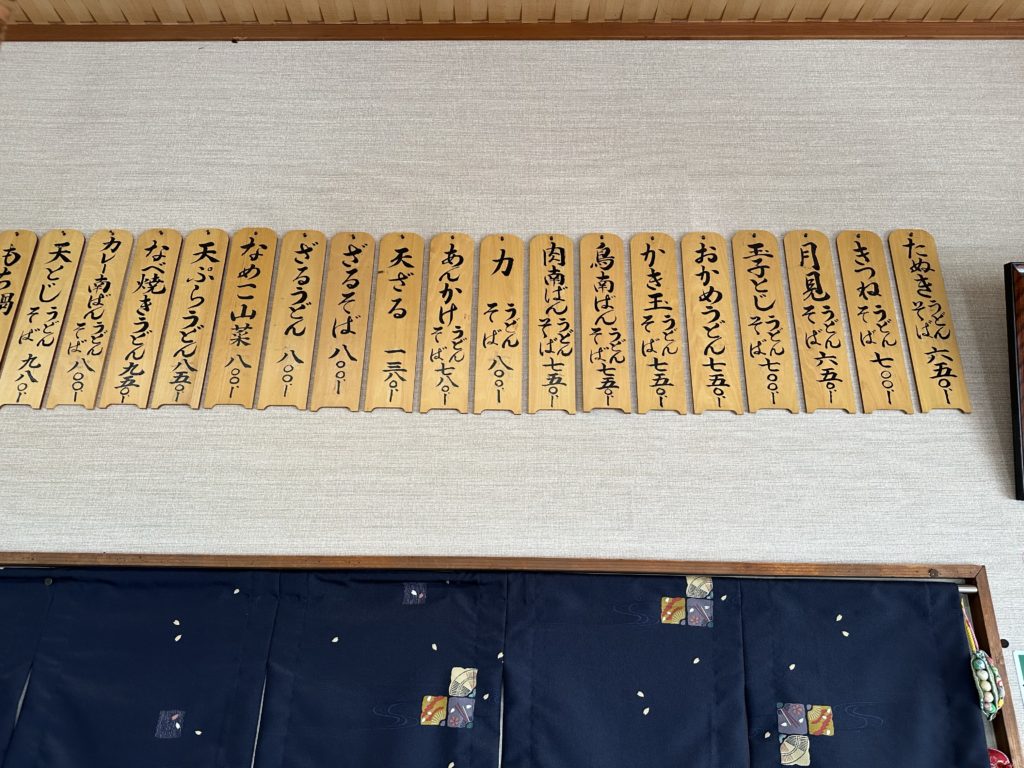 たぬき うどん そば 六五〇ー
きつね うどん そば 七〇〇ー
月見 うどん そば 六五〇ー
玉子とじ うどん そば 七〇〇ー
おかめうどん 七五〇ー
かき玉 うどん そば 七五〇ー
鳥南ばん うどん そば 七五〇ー
肉南ばん うどん そば 七五〇ー
力 うどん そば 八〇〇ー
あんかけ うどん そば 七八〇ー
天ざる 一三八〇ー
ざるそば 八〇〇ー
ざるうどん 八〇〇ー
なめこ山菜 八〇〇ー
天ぷらうどん 八五〇ー
なべ焼きうどん 九五〇ー
カレー南ばん うどん そば 八〇〇ー
天とじ うどん そば 九八〇ー
もち鍋